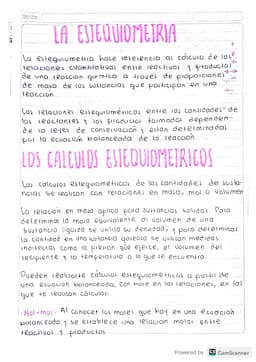 LA ESTEQUIOMETRIA
La estequiometria hace referencia al cálculo de las
relaciones cuantitativas entre reactivos y productos
de una reaccion quimica a través de proporciones
de masa de las sustancias que participan en una
reacción.
Las relaciones estequiométricas entre las cantidades de
los reactantes y los productos formados dependen
de la leyes de conservación y estan determinadas
por la ecuación balanceada de la reacción
LOS CALCULOS ESTEQUIOMETRICOS
Los calculos estequiometricos de las cantidades de susta-
ncias se realizan con relaciones en masa, mol o volumen
La relación en masa aplica para sustancias solidas. Para
determinar la masa equivalente al volumen de una
sustancia liquida se utiliza su densidad, y para determinar
la cantidad en una sustancia gaseosa se utilizan medidas
indirectas como la presión que ejerce, el volumen del
recipiente y la temperatura a la que se encuentra.
Pueden realizarse cálculos estequiometricos a partir de
una ecuacion balanceada, con base en las relaciones, en las
que se requieran calcular
· Mol-mol: Al conocer las moles que hay en una ecuación
balanceada y se establece una relacion molar entre
reactivos y productos
Powered by CS CamScanner